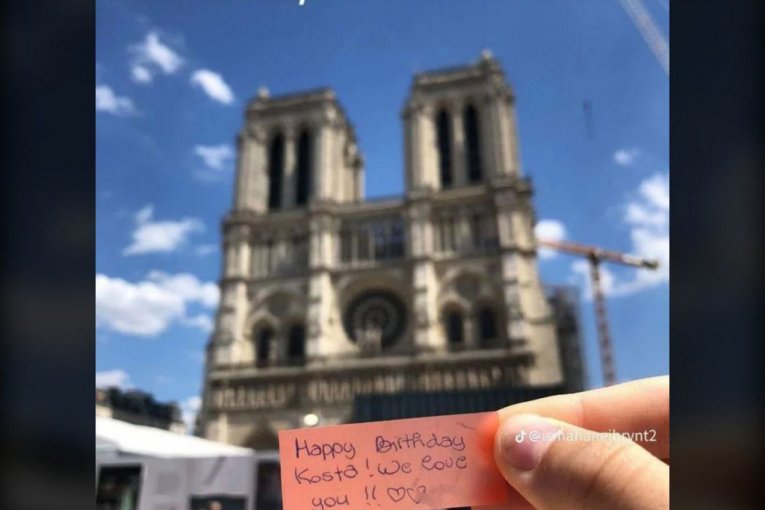 Happy Birthday
Kosta! We love
you!! ♡♡
@ismananejbrynt2